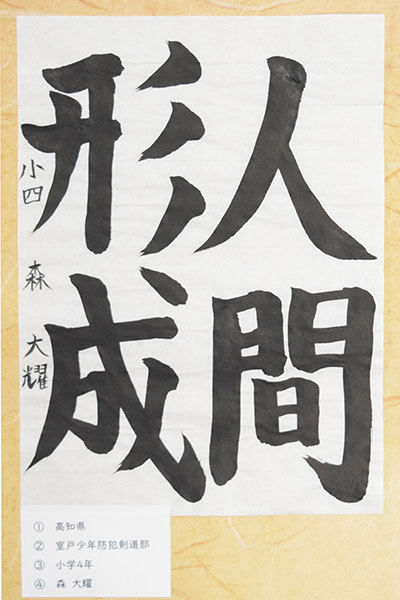 人間
形成
小四 森 大耀
① 高知県
② 室戸少年防犯剣道部
③ 小学4年
④ 森 大耀